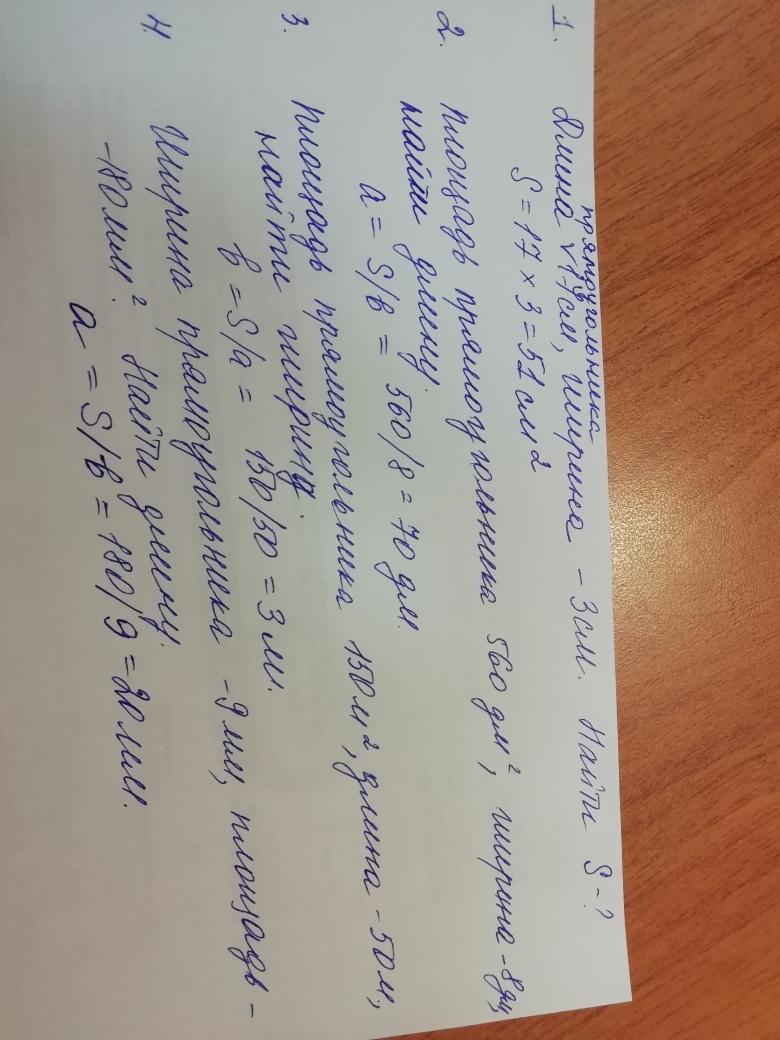 1. Длина прямоугольника 17см, ширина - 3см. Найти S-?
S = 17 × 3 = 51 см²
2. Площадь прямоугольника 560 дм², ширина - 8дм,
найти длину.
a = S/b = 560/8 = 70 дм.
3. Площадь прямоугольника 150м², длина - 50м,
найти ширину.
b = S/a = 150/50 = 3 м.
4. Ширина прямоугольника - 9мм, площадь -
- 180мм². Найти длину.
a = S/b = 180/9 = 20мм.